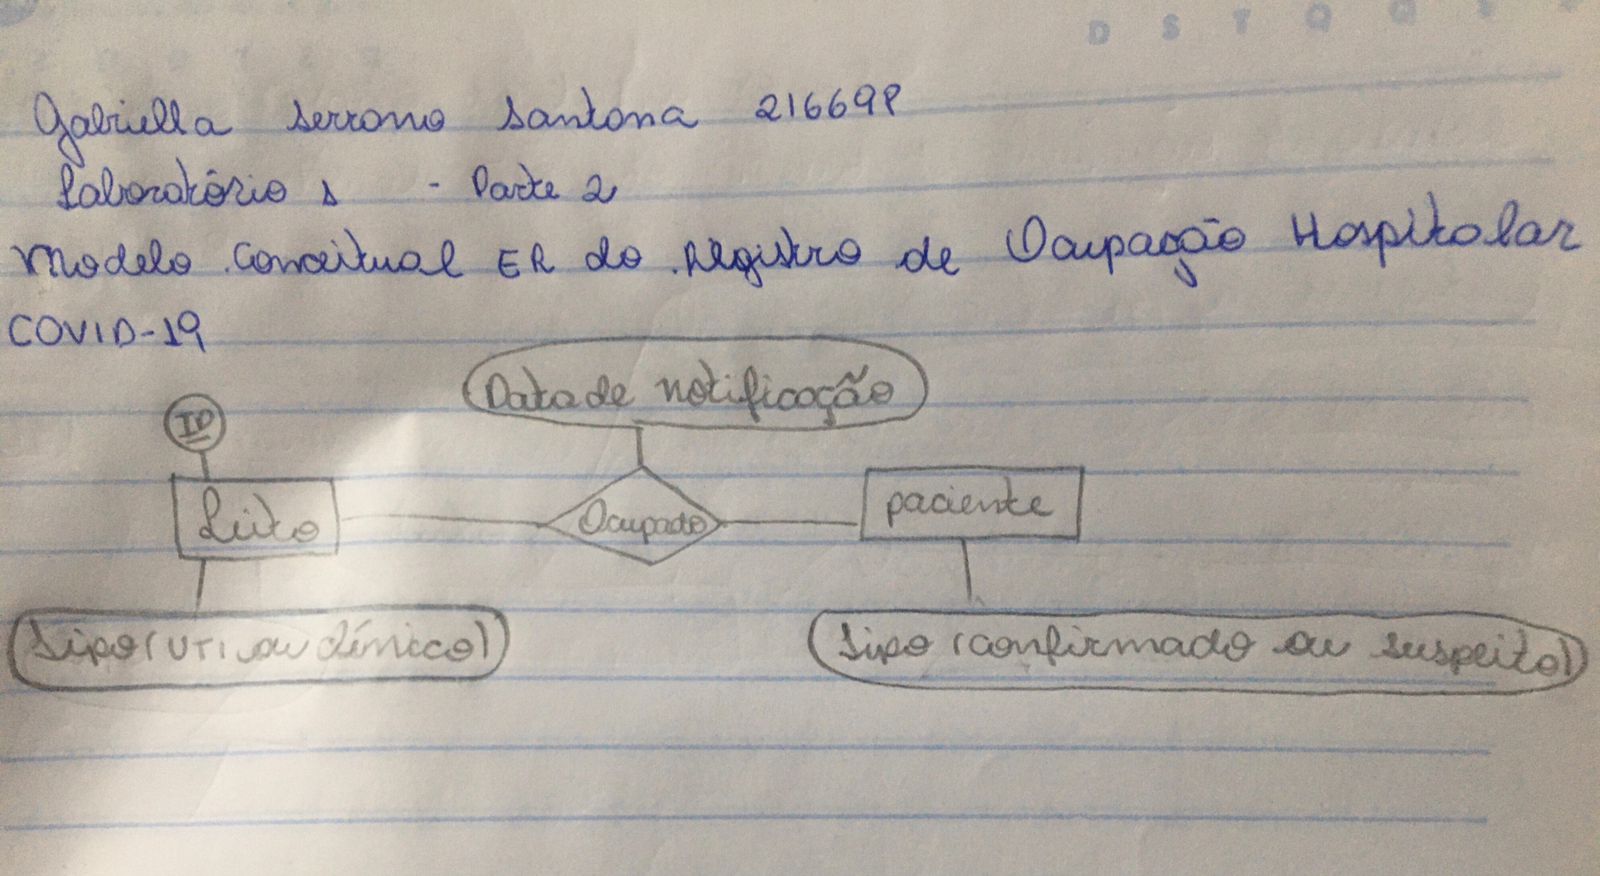 D S T Q Q S
Gabriella Serrano Santana 216698
Laboratório 1 - Parte 2
Modelo Conceitual ER do Registro de Ocupação Hospitalar
COVID-19
Data de notificação
ID
Leito
Ocupado
paciente
Tipo (UTI ou clínico)
Tipo (confirmado ou suspeito)